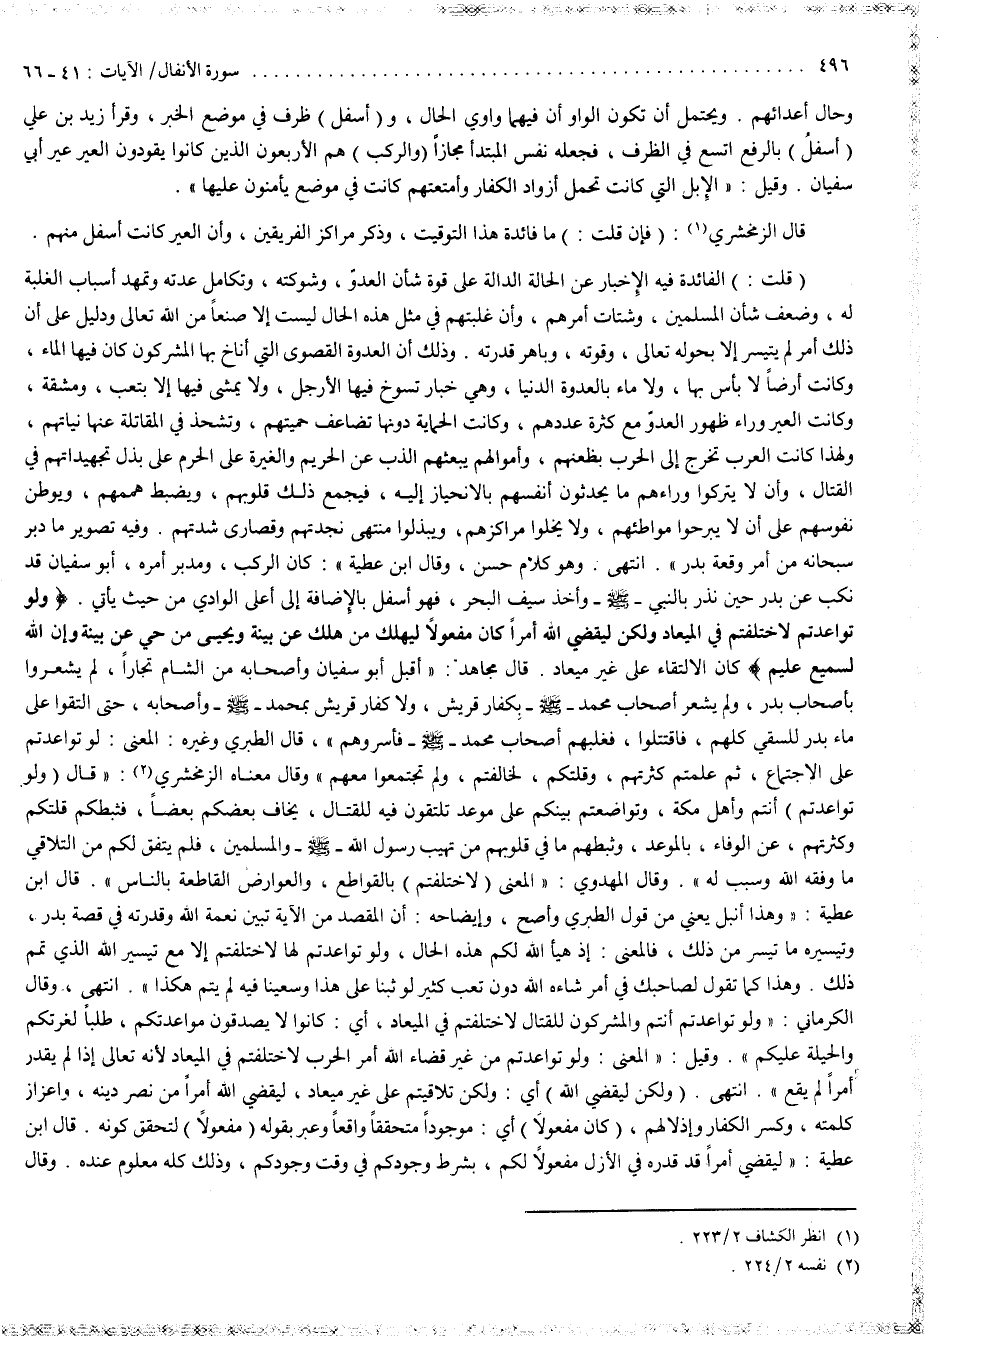 ٤٩٦ ..................................................... سورة الأنفال/ الآيات : ٤١ ـ ٦٦
وحال أعدائهم . ويحتمل أن تكون الواو أن فيهما واوي الحال ، و ( أسفل ) ظرف في موضع الخبر ، وقرأ زيد بن علي
( أسفلُ ) بالرفع اتسع في الظرف ، فجعله نفس المبتدأ مجازاً (والركب) هم الأربعون الذين كانوا يقودون العير عير أبي
سفيان . وقيل : « الإبل التي كانت تحمل أزواد الكفار وأمتعتهم كانت في موضع يأمنون عليها » .
قال الزمخشري(١) : ( فإن قلت : ) ما فائدة هذا التوقيت ، وذكر مراكز الفريقين ، وأن العير كانت أسفل منهم .
( قلت : ) الفائدة فيه الإخبار عن الحالة الدالة على قوة شأن العدوّ ، وشوكته ، وتكامل عدته وتمهد أسباب الغلبة
له ، وضعف شأن المسلمين ، وشتات أمرهم ، وأن غلبتهم في مثل هذه الحال ليست إلا صنعاً من الله تعالى ودليل على أن
ذلك أمر لم يتيسر إلا بحوله تعالى ، وقوته ، وباهر قدرته . وذلك أن العدوة القصوى التي أناخ بها المشركون كان فيها الماء ،
وكانت أرضاً لا بأس بها ، ولا ماء بالعدوة الدنيا ، وهي خبار تسوخ فيها الأرجل ، ولا يمشى فيها إلا بتعب ، ومشقة ،
وكانت العير وراء ظهور العدوّ مع كثرة عددهم ، وكانت الحماية دونها تضاعف حميتهم ، وتشحذ في المقاتلة عنها نياتهم ،
ولهذا كانت العرب تخرج إلى الحرب بظعنهم ، وأموالهم يبعثهم الذب عن الحريم والغيرة على الحرم على بذل تجهيداتهم في
القتال ، وأن لا يتركوا وراءهم ما يحدثون أنفسهم بالانحياز إليه ، فيجمع ذلك قلوبهم ، ويضبط هممهم ، ويوطن
نفوسهم على أن لا يبرحوا مواطئهم ، ولا يخلوا مراكزهم، ويبذلوا منتهى نجدتهم وقصارى شدتهم . وفيه تصوير ما دبر
سبحانه من أمر وقعة بدر » . انتهى . وهو كلام حسن ، وقال ابن عطية » : كان الركب ، ومدبر أمره ، أبو سفيان قد
نكب عن بدر حين نذر بالنبي ـ ﷺ ـ وأخذ سيف البحر ، فهو أسفل بالإضافة إلى أعلى الوادي من حيث يأتي . ﴿ ولو
تواعدتم لاختلفتم في الميعاد ولكن ليقضي الله أمراً كان مفعولاً ليهلك من هلك عن بينة ويحيى من حي عن بينة وإن الله
لسميع عليم ﴾ كان الالتقاء على غير ميعاد . قال مجاهد : « أقبل أبو سفيان وأصحابه من الشام تجاراً ، لم يشعروا
بأصحاب بدر ، ولم يشعر أصحاب محمد ـ ﷺ ـ بكفار قريش ، ولا كفار قريش بمحمد ـ ﷺ ـ وأصحابه ، حتى التقوا على
ماء بدر للسقي كلهم ، فاقتتلوا ، فغلبهم أصحاب محمد ـ ﷺ ـ فأسروهم » ، قال الطبري وغيره : المعنى : لو تواعدتم
على الاجتماع ، ثم علمتم كثرتهم ، وقلتكم ، لخالفتم ، ولم تجتمعوا معهم » وقال معناه الزمخشري(٢) : « قال ( ولو
تواعدتم ) أنتم وأهل مكة ، وتواضعتم بينكم على موعد تلتقون فيه للقتال ، يخاف بعضكم بعضاً ، فثبطكم قلتكم
وكثرتهم ، عن الوفاء ، بالموعد ، وثبطهم ما في قلوبهم من تهيب رسول الله ـ ﷺ ـ والمسلمين ، فلم يتفق لكم من التلاقي
ما وفقه الله وسبب له » . وقال المهدوي : « المعنى ( لاختلفتم ) بالقواطع ، والعوارض القاطعة بالناس » . قال ابن
عطية : « وهذا أنبل يعني من قول الطبري وأصح ، وإيضاحه : أن المقصد من الآية تبين نعمة الله وقدرته في قصة بدر ،
وتيسيره ما تيسر من ذلك ، فالمعنى : إذ هيأ الله لكم هذه الحال ، ولو تواعدتم لها لاختلفتم إلا مع تيسير الله الذي تمم
ذلك . وهذا كما تقول لصاحبك في أمر شاءه الله دون تعب كثير لو ثبنا على هذا وسعينا فيه لم يتم هكذا » . انتهى ، وقال
الكرماني : « ولو تواعدتم أنتم والمشركون للقتال لاختلفتم في الميعاد ، أي : كانوا لا يصدقون مواعدتكم ، طلباً لغرتكم
والحيلة عليكم » . وقيل : « المعنى : ولو تواعدتم من غير قضاء الله أمر الحرب لاختلفتم في الميعاد لأنه تعالى إذا لم يقدر
أمراً لم يقع » . انتهى . ( ولكن ليقضي الله ) أي : ولكن تلاقيتم على غير ميعاد ، ليقضي الله أمراً من نصر دينه ، واعزاز
كلمته ، وكسر الكفار وإذلالهم ، ( كان مفعولاً ) أي : موجوداً متحققاً واقعاً وعبر بقوله ( مفعولاً ) لتحقق كونه . قال ابن
عطية : « ليقضي أمراً قد قدره في الأزل مفعولاً لكم ، بشرط وجودكم في وقت وجودكم ، وذلك كله معلوم عنده . وقال
(١) انظر الكشاف ٢٢٣/٢ .
(٢) نفسه ٢٢٤/٢ .